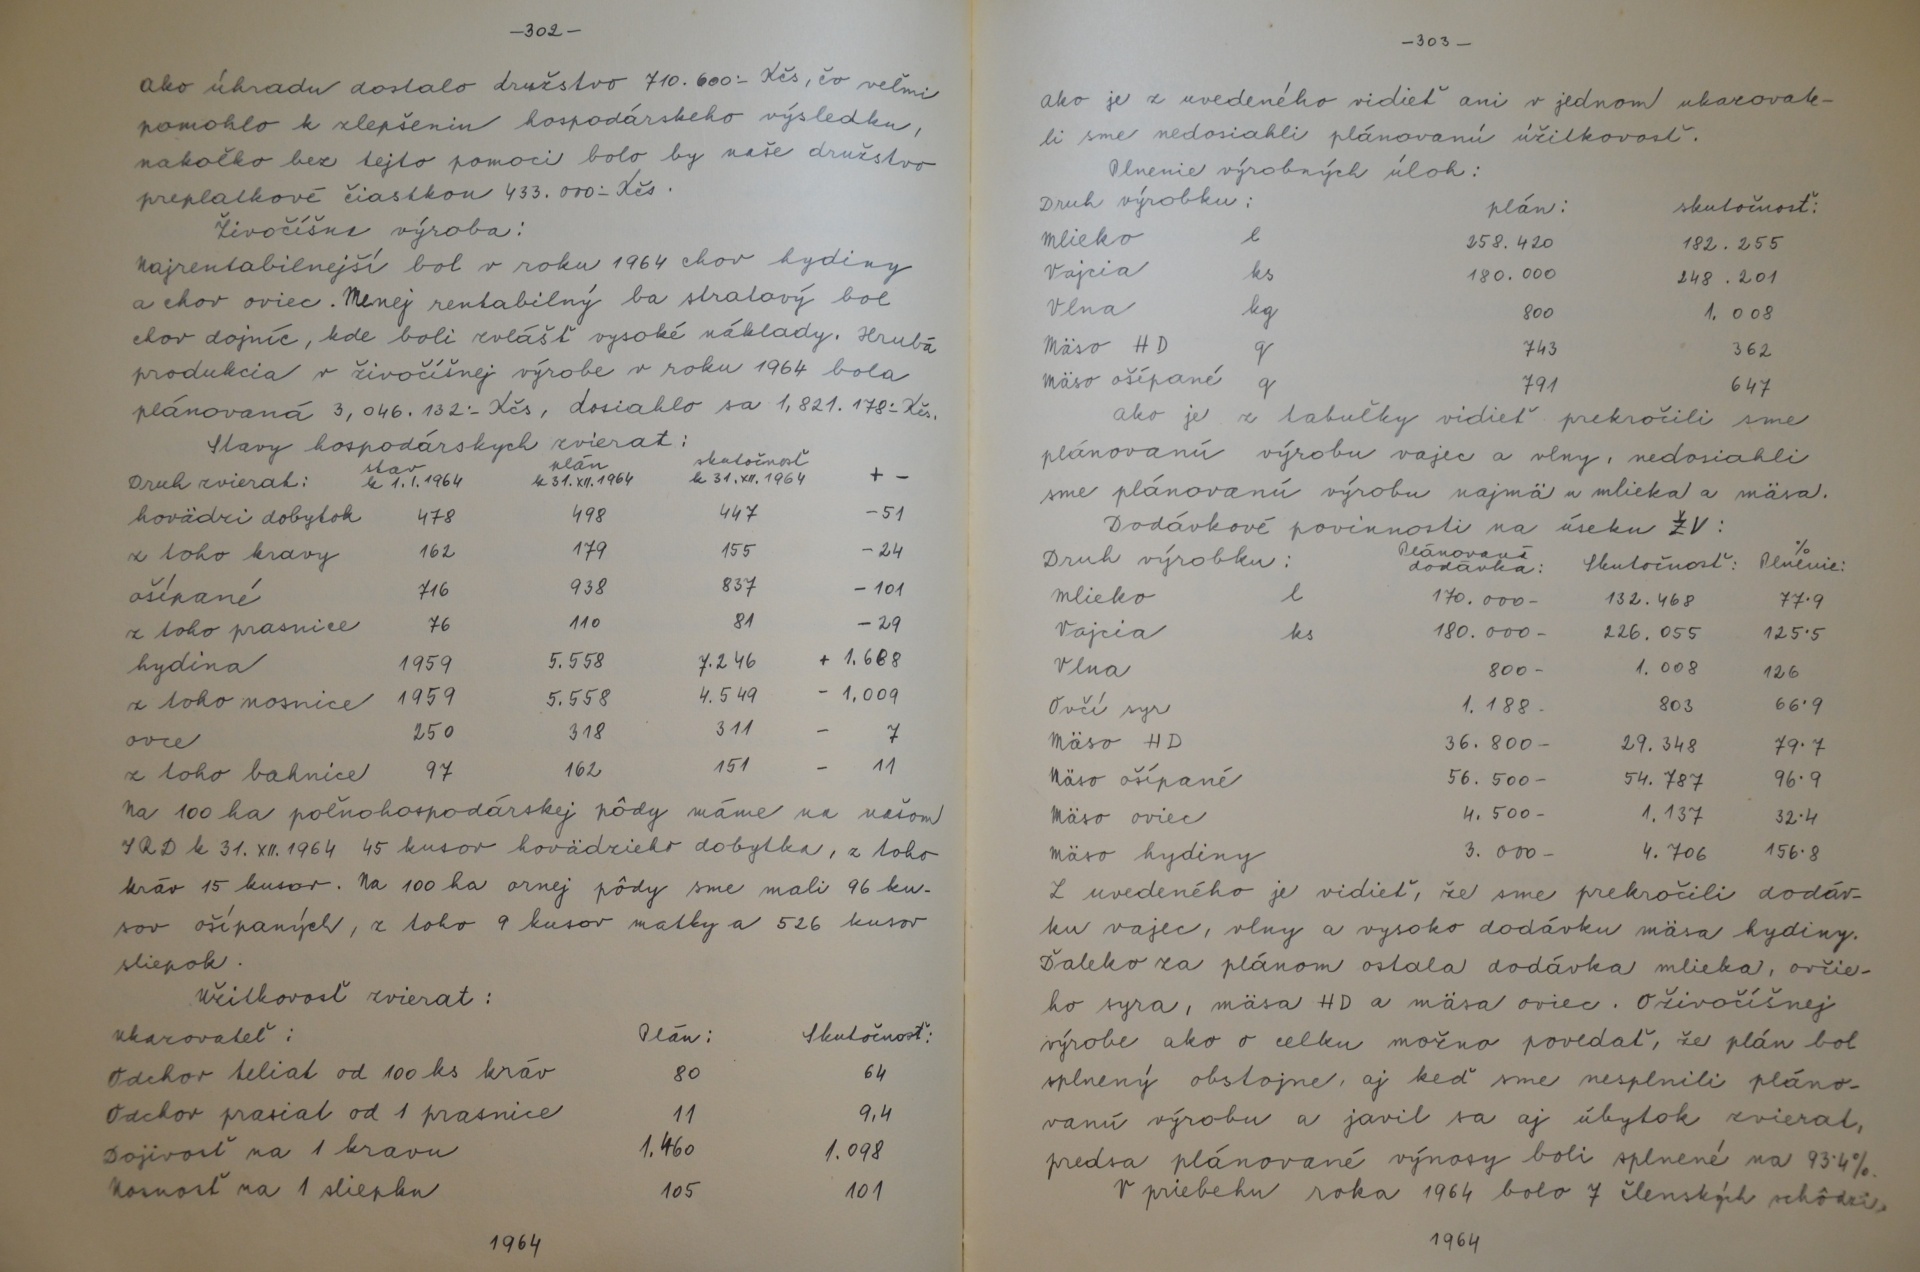 -302-
Ako úhradu dostalo družstvo 710.600:- Kčs, čo veľmi
pomohlo k zlepšeniu hospodárskeho výsledku,
nakoľko bez tejto pomoci bolo by naše družstvo
preplatkové čiastkou 433.000:- Kčs.
Živočíšna výroba:
Najrentabilnejší bol v roku 1964 chov hydiny
a chov oviec. Menej rentabilný ba stratový bol
chov dojníc, kde boli zvlášť vysoké náklady. Hrubá
produkcia v živočíšnej výrobe v roku 1964 bola
plánovaná 3,046.132:- Kčs, dosiahlo sa 1,821.178:- Kčs.
Stavy hospodárskych zvierat:
Druh zvierat: stav k 1.I.1964 plán k 31.XII.1964 skutočnosť k 31.XII.1964 + -
hovädzí dobytok 478 498 447 -51
z toho kravy 162 179 155 -24
ošípané 716 938 837 -101
z toho prasnice 76 110 81 -29
hydina 1959 5.558 7.246 + 1.688
z toho nosnice 1959 5.558 4.549 - 1,009
ovce 250 318 311 - 7
z toho bahnice 97 162 151 - 11
Na 100 ha poľnohospodárskej pôdy máme na našom
JRD k 31.XII.1964 45 kusov hovädzieho dobytka, z toho
kráv 15 kusov. Na 100 ha ornej pôdy sme mali 96 ku-
sov ošípaných, z toho 9 kusov matky a 526 kusov
sliepok.
Užitkovosť zvierat:
Ukazovateľ: Plán: Skutočnosť:
Odchov teliat od 100 ks kráv 80 64
Odchov prasiat od 1 prasnice 11 9,4
Dojivosť na 1 kravu 1.460 1.098
Nosnosť na 1 sliepku 105 101
1964
-303-
Ako je z uvedeného vidieť ani v jednom ukazovate-
li sme nedosiahli plánovanú úžitkovosť.
Plnenie výrobných úloh:
Druh výrobku: plán: skutočnosť:
Mlieko l 258.420 182.255
Vajcia ks 180.000 248.201
Vlna kg 800 1.008
Mäso HD q 743 362
Mäso ošípané q 791 647
Ako je z tabuľky vidieť prekročili sme
plánovanú výrobu vajec a vlny, nedosiahli
sme plánovanú výrobu najmä u mlieka a mäsa.
Dodávkové povinnosti na úseku ŽV:
Druh výrobku: Plánovaná dodávka: Skutočnosť: % Plnenie:
Mlieko l 170.000- 132.468 77.9
Vajcia ks 180.000- 226.055 125.5
Vlna 800- 1.008 126
Ovčí syr 1.188- 803 66.9
Mäso HD 36.800- 29.348 79.7
Mäso ošípané 56.500- 54.787 96.9
Mäso oviec 4.500- 1.137 32.4
Mäso hydiny 3.000- 4.706 156.8
Z uvedeného je vidieť, že sme prekročili dodáv-
ku vajec, vlny a vysoko dodávku mäsa hydiny.
Ďaleko za plánom ostala dodávka mlieka, ovčie-
ho syra, mäsa HD a mäsa oviec. O živočíšnej
výrobe ako o celku možno povedať, že plán bol
splnený obstojne, aj keď sme nesplnili pláno-
vanú výrobu a javil sa aj úbytok zvierat,
predsa plánované výnosy boli splnené na 93.4%.
V priebehu roka 1964 bolo 7 členských schôdzí,
1964